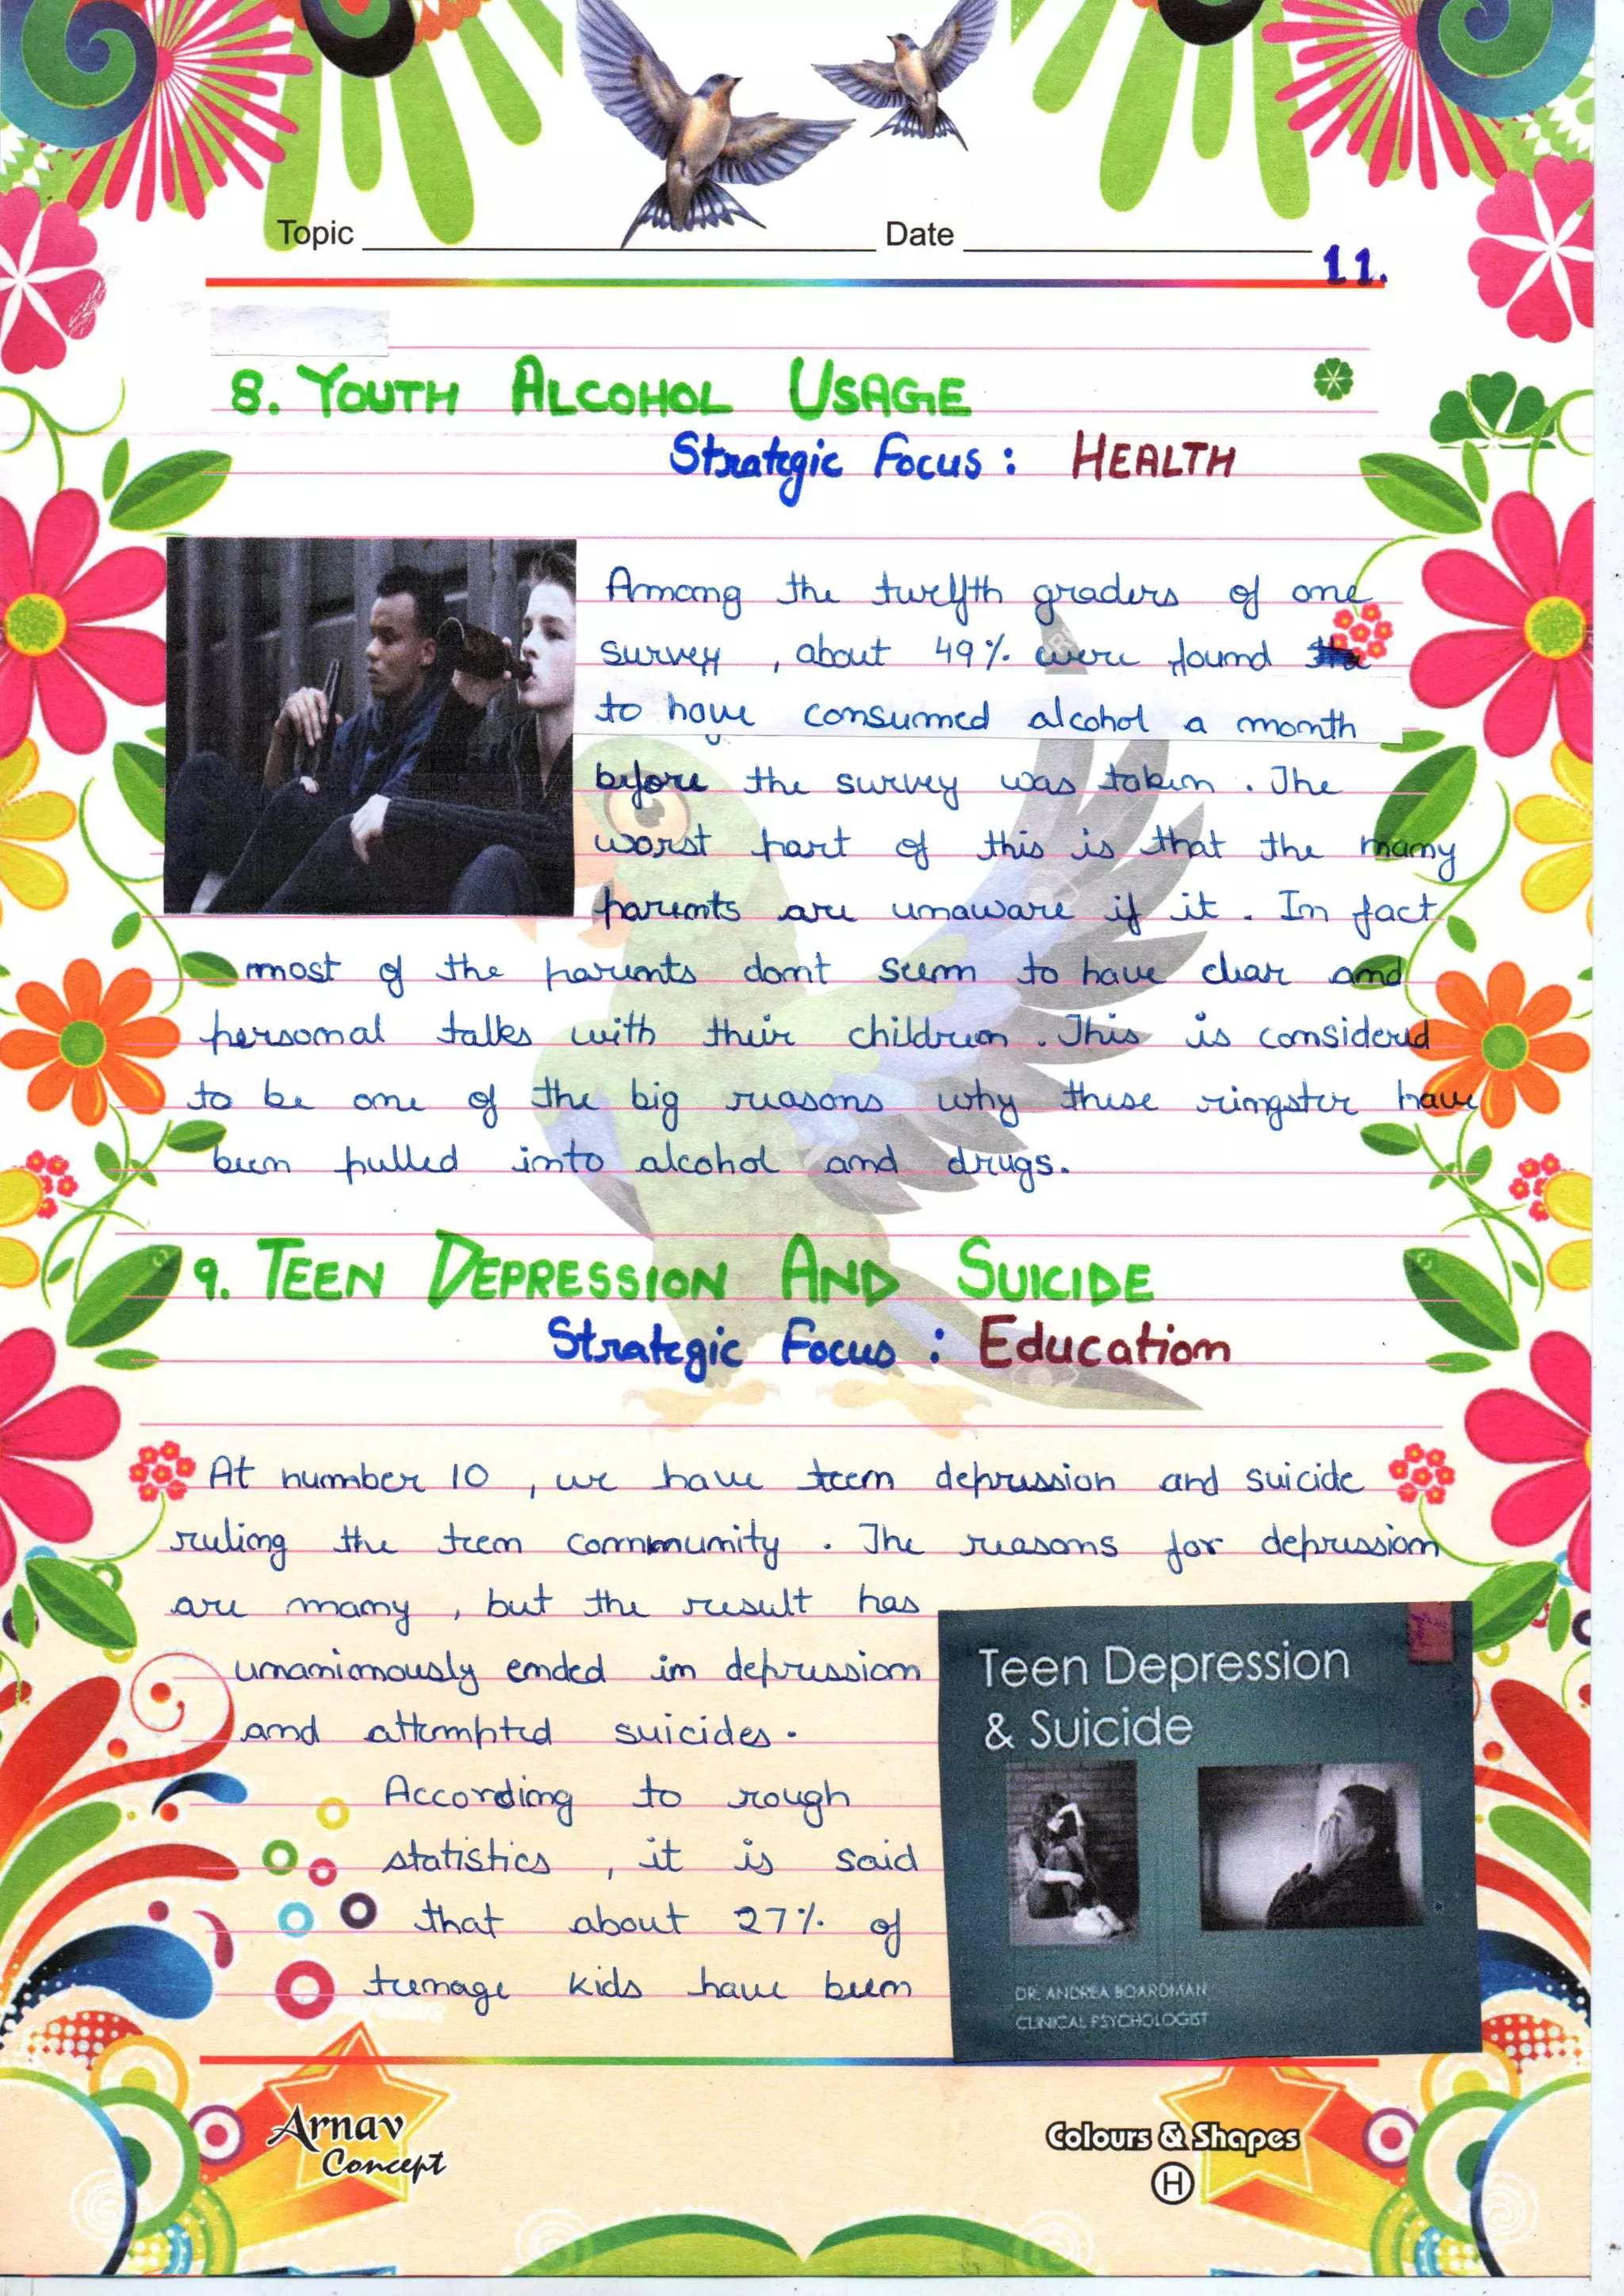 Topic Date
11.
8. YOUTH ALCOHOL USAGE
Strategic Focus : HEALTH
Among the twelfth graders of one
survey , about 49% were found
to have consumed alcohol a month
before the survey was taken . The
worst part of this is that the many
parents are unaware if it . In fact
most of the parents dont seem to have clear and
personal talks with their children . This is considered
to be one of the big reasons why these ringster have
been pulled into alcohol and drugs.
9. TEEN DEPRESSION AND SUICIDE
Strategic Focus : Education
At number 10 , we have teen depression and suicide
ruling the teen community . The reasons for depression
are many , but the result has
unanimously ended in depression
and attempted suicides.
According to rough
statistics , it is said
that about 27% of
teenage kids have been
Teen Depression
& Suicide
DR. ANDREA BOARDMAN
CLINICAL PSYCHOLOGIST
Arnav
Concept
Colours & Shapes
H